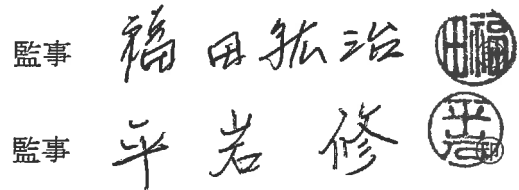 監事 福田紘治 福田
監事 平岩修 平岩